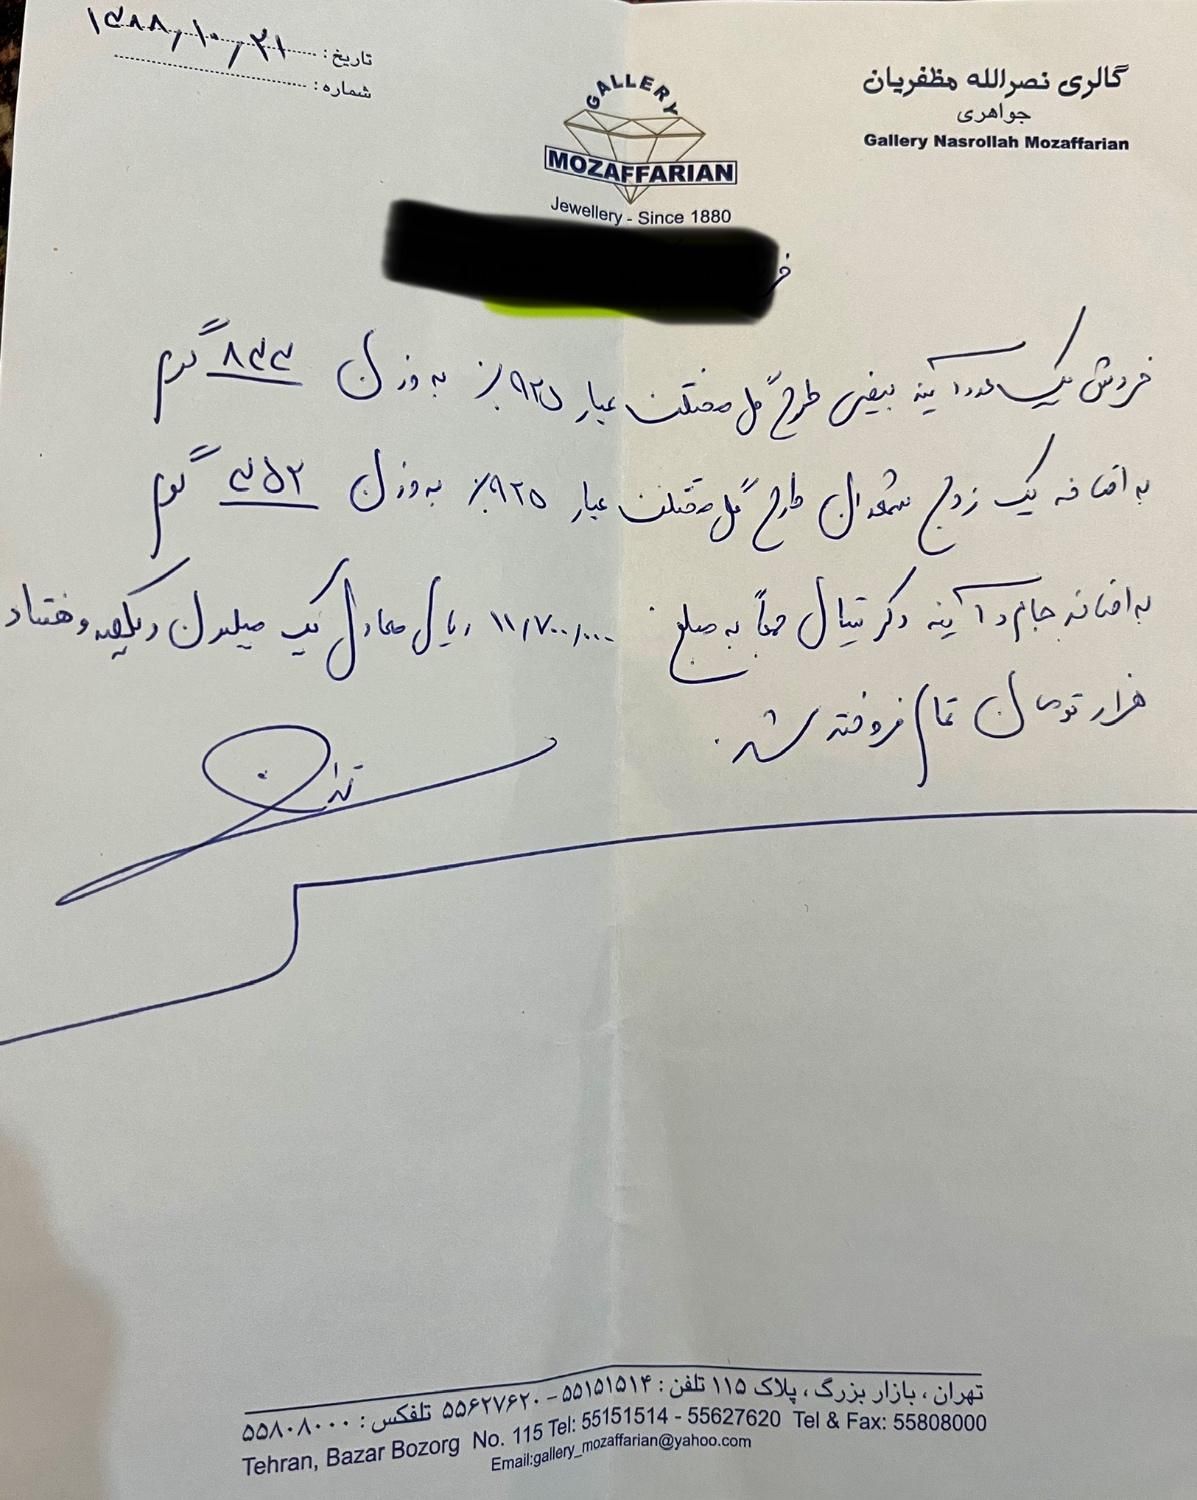 گالری نصرالله مظفریان
جواهری
Gallery Nasrollah Mozaffarian
GALLERY
MOZAFFARIAN
Jewellery - Since 1880
تاریخ : ۱۳۸۸/۱۰/۲۱
شماره :
فروش یک عدد آینه بیضی طرح گل عیار ۹۲۵٪ به وزن ۸۴۳ گرم
به اضافه یک زوج شمعدان طرح گل عیار ۹۲۵٪ به وزن ۳۵۲ گرم
به اضافه جام و آینه و کریستال جمعاً به مبلغ ۱۱/۷۰۰/۰۰۰ ریال معادل یک میلیون و یکصد و هفتاد
هزار تومان تمام فروخته شد.
تهران ، بازار بزرگ ، پلاک ۱۱۵ تلفن : ۵۵۱۵۱۵۱۴ – ۵۵۶۲۷۶۲۰ تلفکس : ۵۵۸۰۸۰۰۰
Tehran, Bazar Bozorg No. 115 Tel: 55151514 - 55627620 Tel & Fax: 55808000
Email:gallery_mozaffarian@yahoo.com